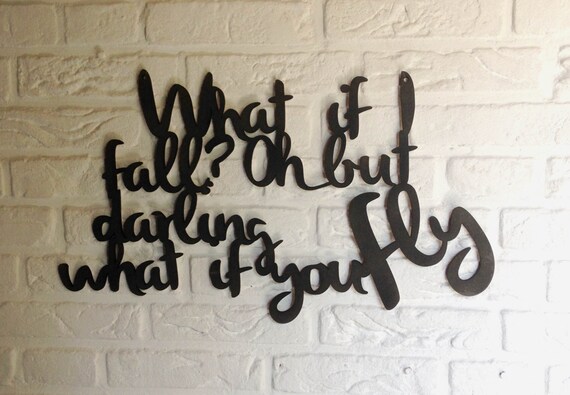 What if I
fall? Oh but
darling
what if you fly